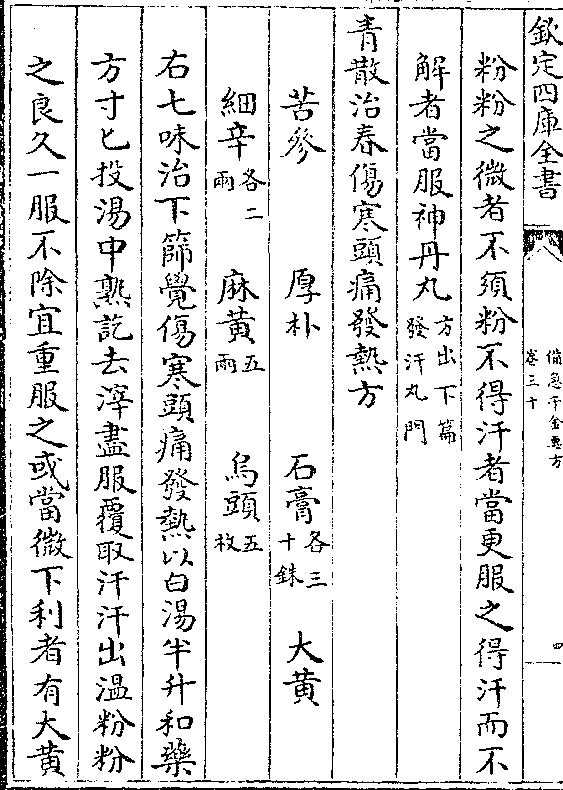 欽定四庫全書
備急千金要方
卷三十
四
粉粉之微者不須粉不得汗者當更服之得汗而不
解者當服神丹丸方出下篇發汗丸門
青散治春傷寒頭痛發熱方
苦參 厚朴 石膏各三十銖 大黄
細辛各二兩 麻黄五兩 烏頭五枚
右七味治下篩覺傷寒頭痛發熱以白湯半升和藥
方寸匕投湯中熟訖去滓盡服覆取汗汗出温粉粉
之良久一服不除宜重服之或當微下利者有大黄